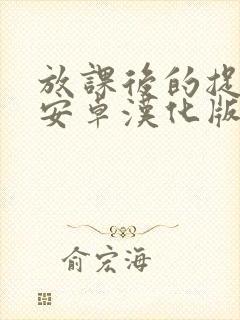 放課後的捉
安卓漢化版
俞宏海